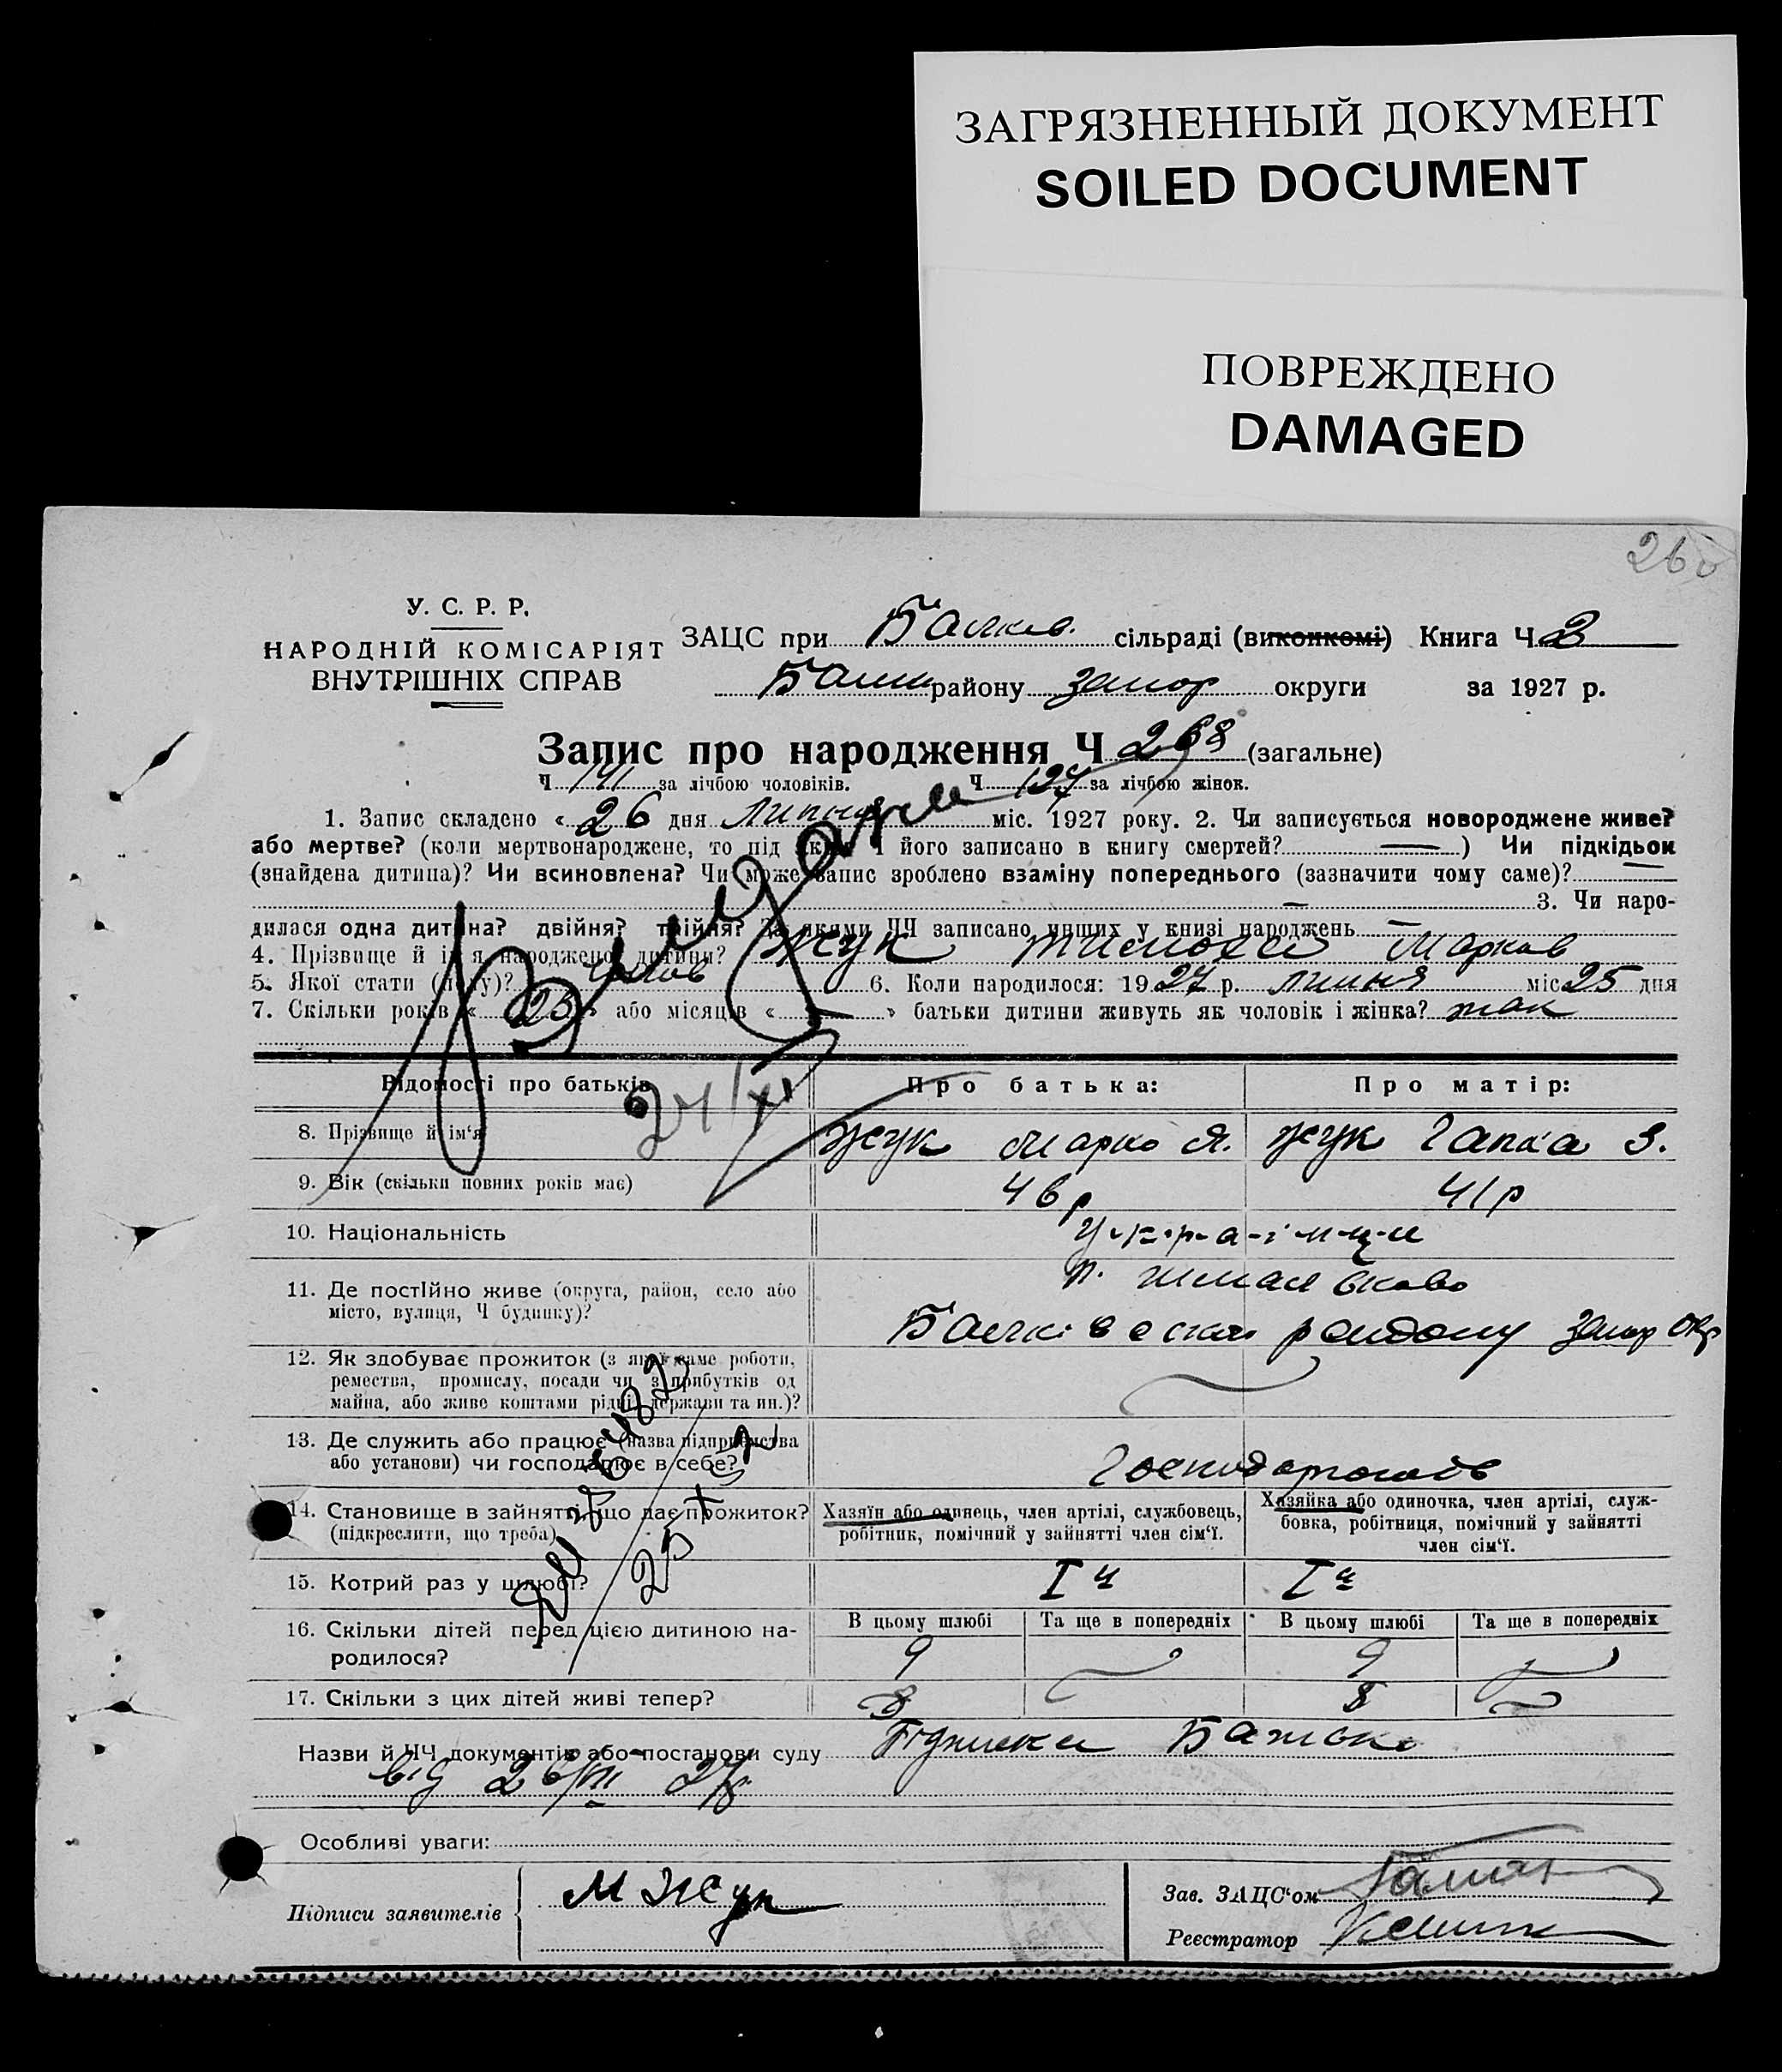 ЗАГРЯЗНЕННЫЙ ДОКУМЕНТ
SOILED DOCUMENT
ПОВРЕЖДЕНО
DAMAGED
У. С. Р. Р.
НАРОДНІЙ КОМІСАРІЯТ
ВНУТРІШНІХ СПРАВ
ЗАЦС при Балків. сільраді (виконкомі) Книга Ч 3
району Запор округи за 1927 р.
Запис про народження Ч 268 (загальне)
Ч 141 за лічбою чоловіків. Ч 127 за лічбою жінок.
1. Запис складено « 26 дня Липня міс. 1927 року. 2. Чи записується новороджене живе?
або мертве? (коли мертвонароджене, то під яким Ч його записано в книгу смертей? —) Чи підкідьок
(знайдена дитина)? Чи всиновлена? Чи може запис зроблено взаміну попереднього (зазначити чому саме)? —
— 3. Чи наро-
дилася одна дитина? двійня? трійня? За якими ЧЧ записано инших у книзі народжень —
4. Прізвище й ім'я народженої дитини? Жук Тимохей Марков
5. Якої стати (полу)? чолов 6. Коли народилося: 1927 р. липня міс 25 дня
7. Скільки років « 23 » або місяців « — » батьки дитини живуть як чоловік і жінка? так
Видано
24/XI
Відомості про батьків
Про батька:
Про матір:
8. Прізвище й ім'я Жук Марко Я. Жук Гапка З.
9. Вік (скільки повних років має) 46 р 41 р
10. Національність У-к-р-а-ї-н-ц-и
11. Де постійно живе (округа, район, село або
місто, вулиця, Ч будинку)?
Балківського району Запор окр
12. Як здобуває прожиток (з якої саме роботи,
ремества, промислу, посади чи з прибутків од
майна, або живе коштами рідні, держави та ин.)?
13. Де служить або працює (назва підприємства
або установи) чи господарює в себе?
14. Становище в зайнятті, що дає прожиток?
(підкреслити, що треба)
Хазяїн або одинець, член артілі, службовець,
робітник, помічний у зайнятті член сім'ї.
Хазяйка або одиночка, член артілі, служ-
бовка, робітниця, помічний у зайнятті
член сім'ї.
15. Котрий раз у шлюбі? I й I й
16. Скільки дітей перед цією дитиною на-
родилося?
В цьому шлюбі Та ще в попередніх В цьому шлюбі Та ще в попередніх
9 9
17. Скільки з цих дітей живі тепер? 8 8
Назви й ЧЧ документів або постанови суду Батьк
від 26/VII 27р.
Особливі уваги:
Підписи заявителів М Жук
Зав. ЗАЦС'ом
Реєстратор